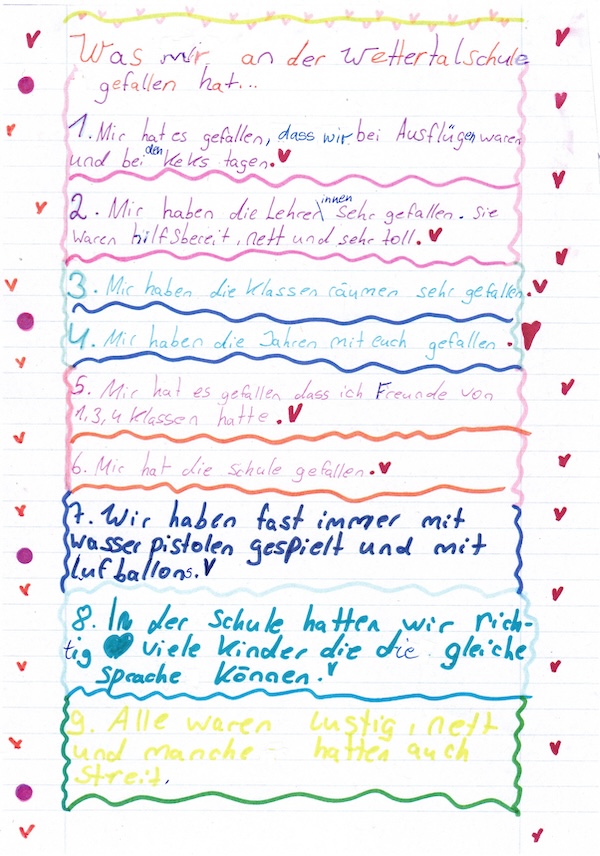 Was mir an der Wettertalschule
gefallen hat...
1. Mir hat es gefallen, dass wir bei Ausflügen waren
und bei den Keks tagen.
2. Mir haben die Lehrer innen sehr gefallen. Sie
waren hilfsbereit, nett und sehr toll.
3. Mir haben die Klassen räumen sehr gefallen.
4. Mir haben die Jahren mit euch gefallen.
5. Mir hat es gefallen dass ich Freunde von
1,3,4 Klassen hatte.
6. Mir hat die Schule gefallen.
7. Wir haben fast immer mit
wasser pistolen gespielt und mit
lufballons.
8. In der Schule hatten wir rich-
tig viele Kinder die die gleiche
sprache können.
9. Alle waren lustig, nett
und manche - hatten auch
streit.